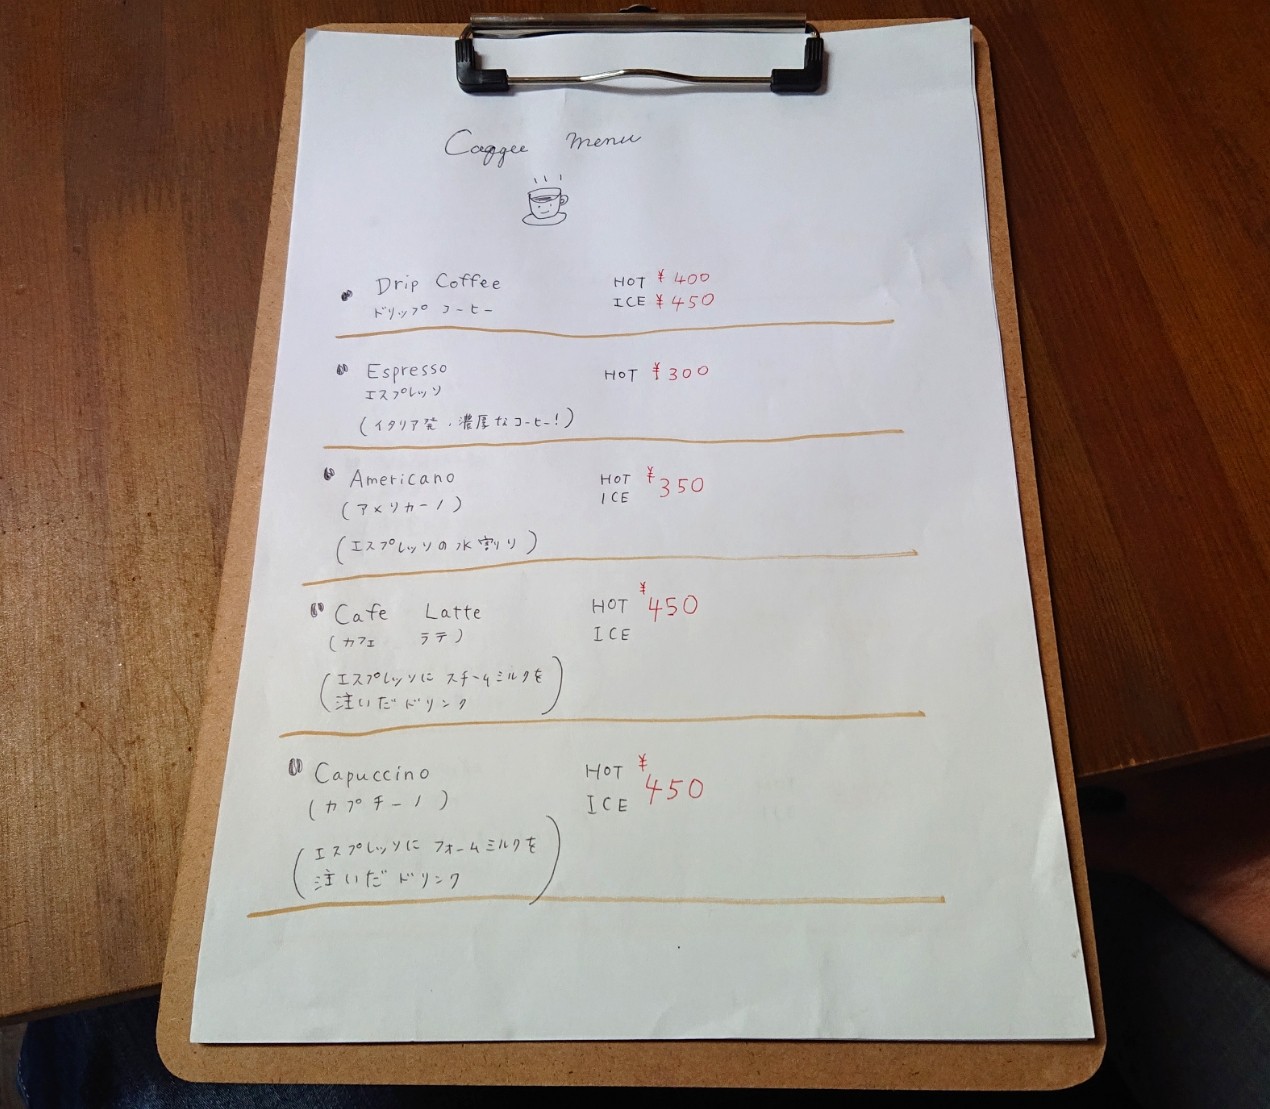 Coffee menu
Drip Coffee HOT ¥400
ドリップ コーヒー ICE ¥450
Espresso HOT ¥300
エスプレッソ
(イタリア発・濃厚なコーヒー!)
Americano HOT ICE ¥350
(アメリカーノ)
(エスプレッソの水割り)
Cafe Latte HOT ICE ¥450
(カフェ ラテ)
(エスプレッソに スチームミルクを
注いだドリンク)
Capuccino HOT ICE ¥450
(カプチーノ)
(エスプレッソに フォームミルクを
注いだドリンク)